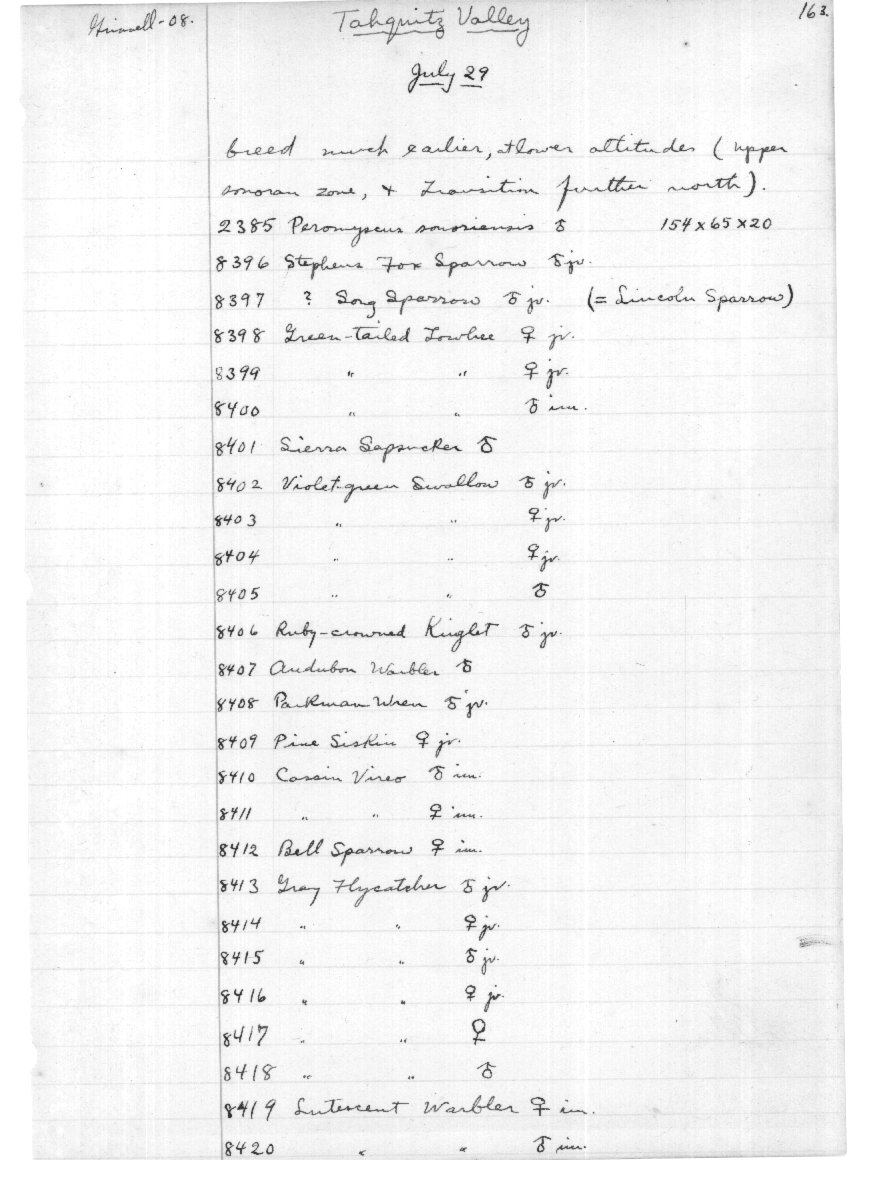 Grinnell-08.
Tahquitz Valley
163.
July 29
breed much earlier, at lower altitudes (upper
sonoran zone, & Transition further north).
2385 Peromyscus sonoriensis ♂ 154 x 65 x 20
8396 Stephens Fox Sparrow ♂ jv.
8397 ? Song Sparrow ♂ jv. (= Lincoln Sparrow)
8398 Green-tailed Towhee ♀ jv.
8399 " " ♀ jv.
8400 " " ♂ im.
8401 Sierra Sapsucker ♂
8402 Violet-green Swallow ♂ jv.
8403 " " ♀ jv.
8404 " " ♀ jv.
8405 " " ♂
8406 Ruby-crowned Kinglet ♂ jv.
8407 Audubon Warbler ♂
8408 Parkman Wren ♂ jv.
8409 Pine Siskin ♀ jr.
8410 Cassin Vireo ♂ im.
8411 " " ♀ im.
8412 Bell Sparrow ♀ im.
8413 Gray Flycatcher ♂ jv.
8414 " " ♀ jv.
8415 " " ♂ jv.
8416 " " ♀ jv.
8417 " " ♀
8418 " " ♂
8419 Lutescent Warbler ♀ im.
8420 " " ♂ im.